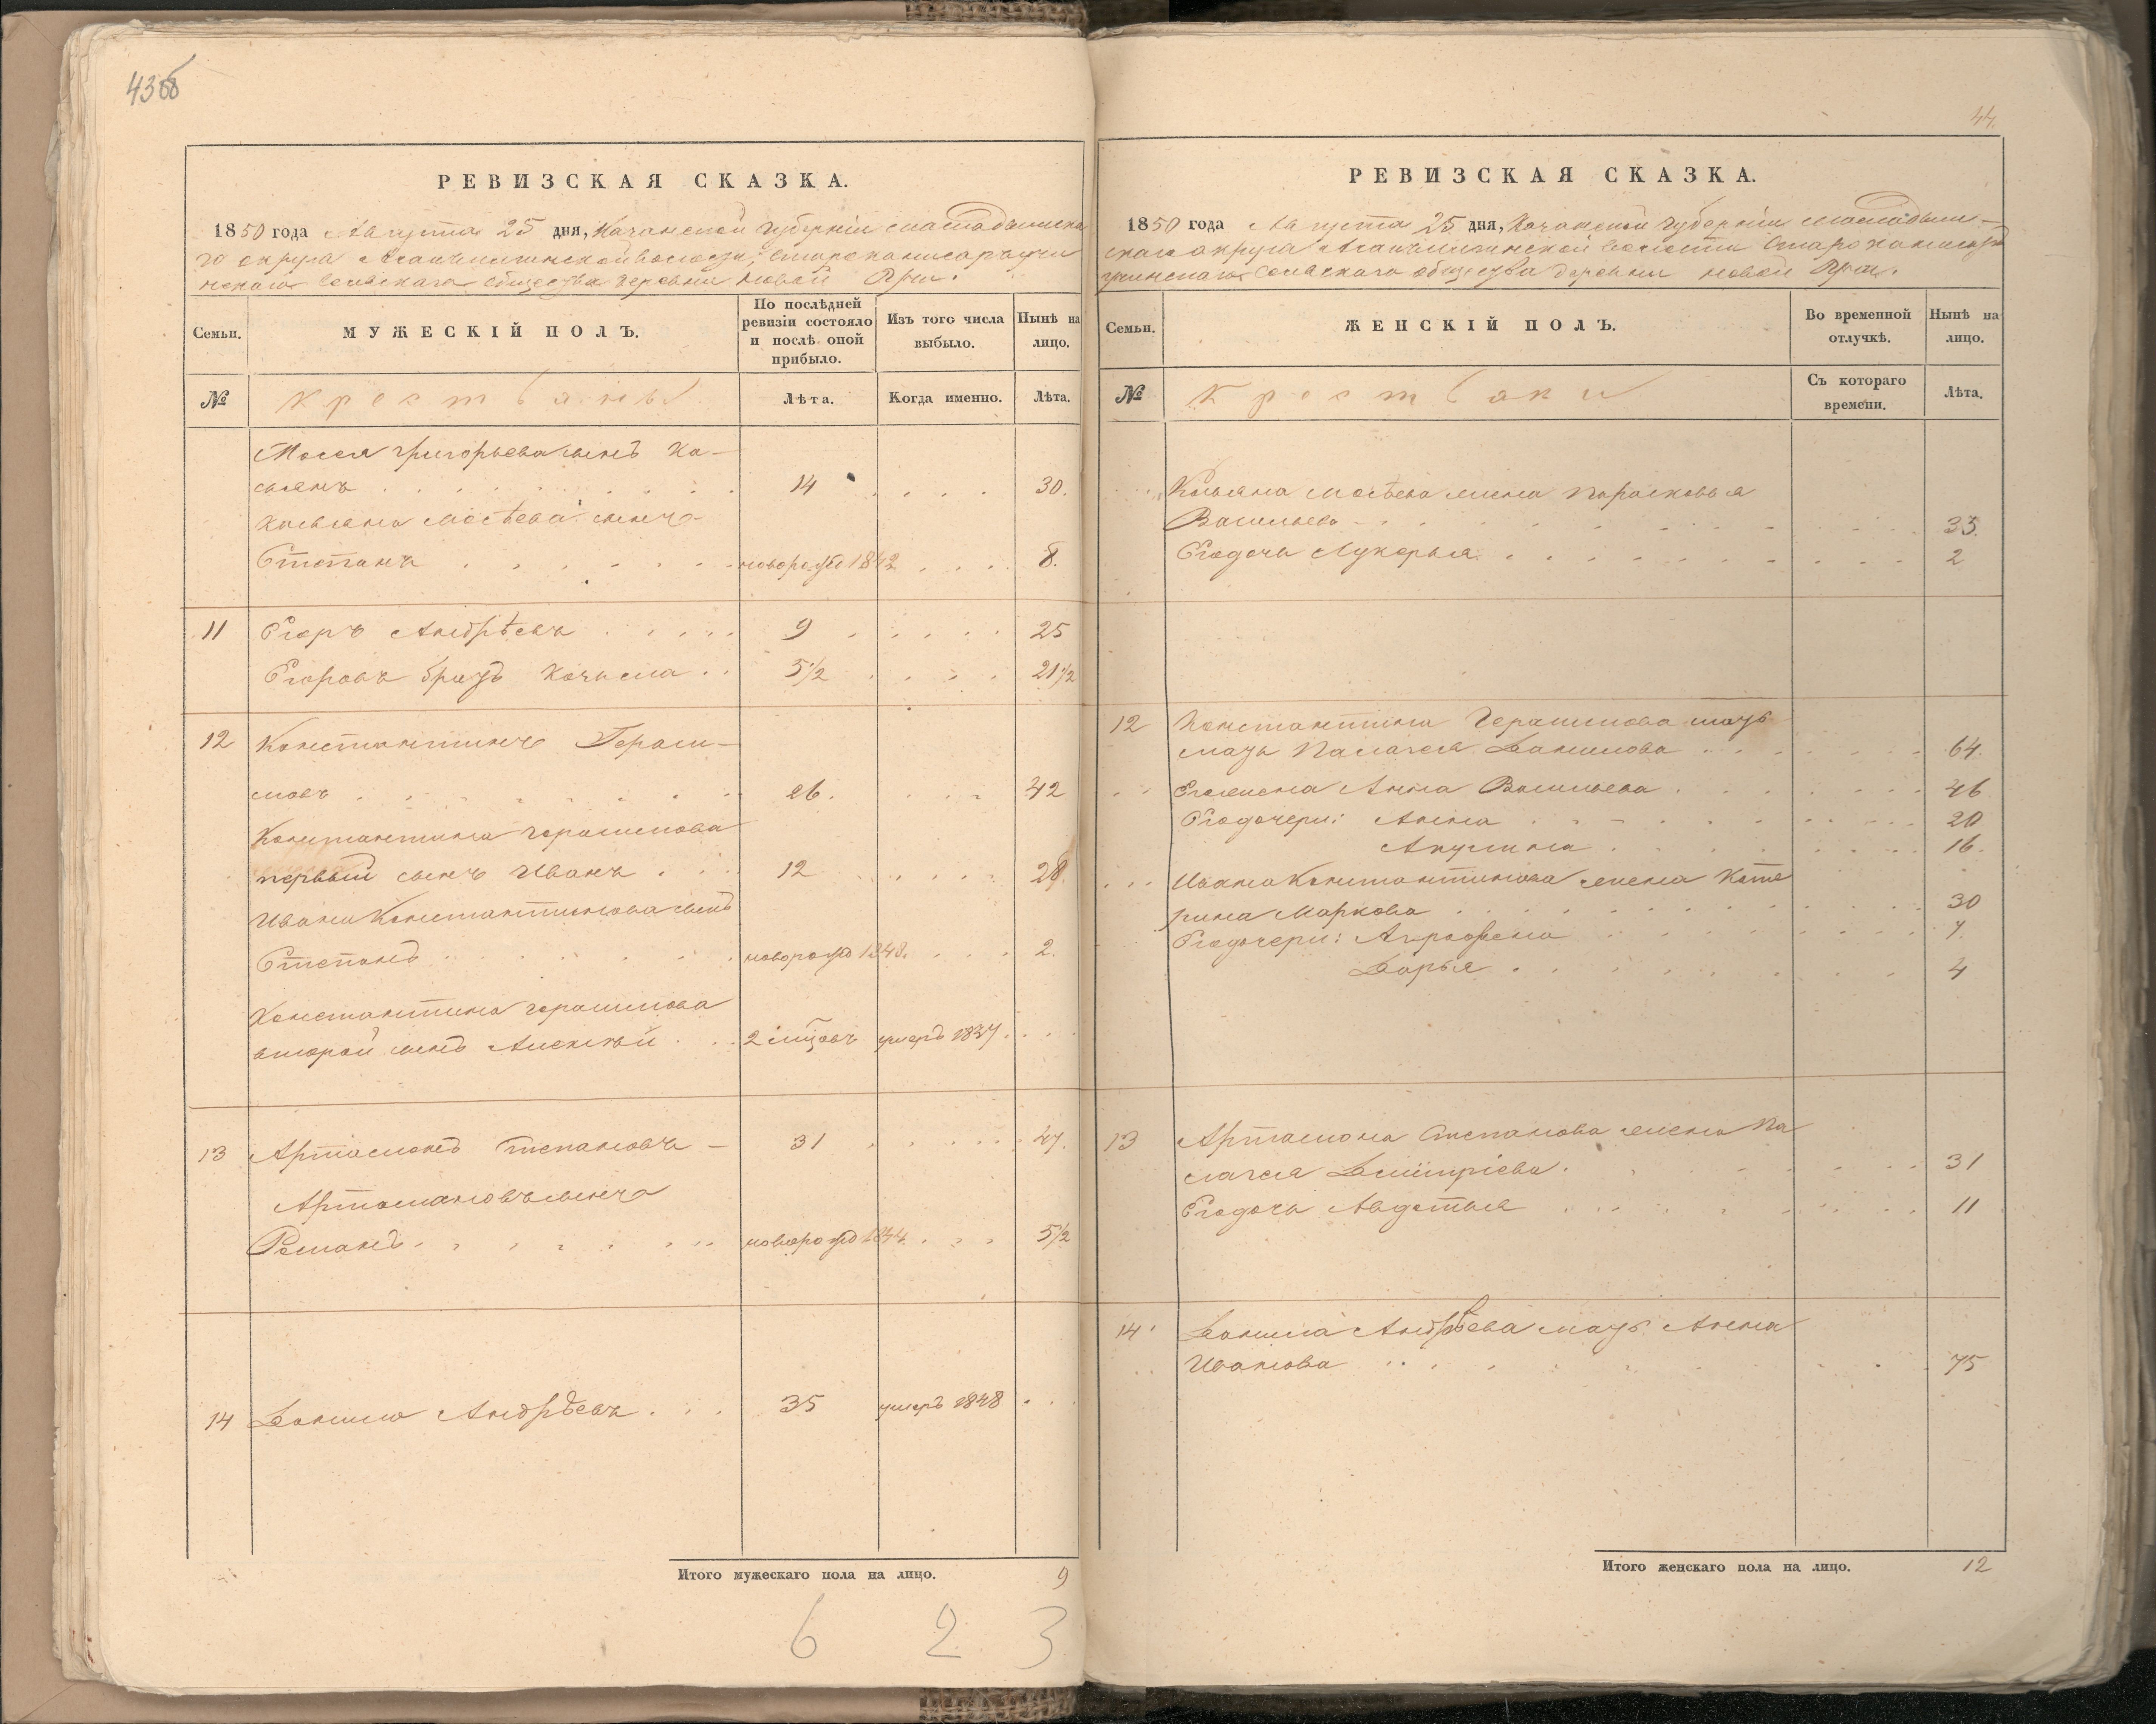 43об
РЕВИЗСКАЯ СКАЗКА.
1850 года Августа 25 дня, Казанской губернiи Мамадышска
го округа волости,
сельскаго общества деревни Новой
Семьи.
МУЖЕСКІЙ ПОЛЪ.
По послѣдней ревизіи состояло и послѣ оной прибыло.
Изъ того числа выбыло.
Нынѣ на лицо.
№
Крестьяны
Лѣта.
Когда именно.
Лѣта.
Мосея Григорьева сынъ Ка-
сьянъ 14 30.
Касьяна Мосѣева сынъ
Степанъ новорожд 1842 8.
11 Егоръ Андрѣевъ 9 25
Егоровъ братъ Козьма 5 1/2 21 1/2
12 Константинъ Гераси-
мовъ 26. 42
Константина Герасимова
первый сынъ Иванъ 12 28
Ивана Константинова сынъ
Степанъ новорожд 1848. 2.
Константина Герасимова
второй сынъ Алексѣй 2 мцовъ умеръ 1837
13 Артамонъ Степановъ 31 47.
Артамоновъ сынъ
Романъ новорожд 1844 5 1/2
14 Данило Андрѣевъ 35 умеръ 1848
Итого мужескаго пола на лицо. 9
6 2 3
44.
РЕВИЗСКАЯ СКАЗКА.
1850 года Августа 25 дня, Казанской губернiи Мамадыш-
скаго округа волости
сельскаго общества деревни Новой
Семьи.
ЖЕНСКІЙ ПОЛЪ.
Во временной отлучкѣ.
Нынѣ на лицо.
№
Крестьяки
Съ котораго времени.
Лѣта.
Касьяна Мосѣева жена Парасковья
Васильева 33.
Его дочь Лукерья 2
12 Константина Герасимова мать
мать Палагея Данилова 64.
Его жена Анна Васильева 46
Его дочери: Анна 20
Акулина 16.
Ивана Константинова жена Кате
рина Маркова 30
Его дочери: Аграфена 7.
Дарья 4
13 Артамона Степанова жена Па
лагея Дмитріева 31
Его дочь Авдотья 11
14 Данила Андрѣева мать Анна
Иванова 75
Итого женскаго пола на лицо. 12